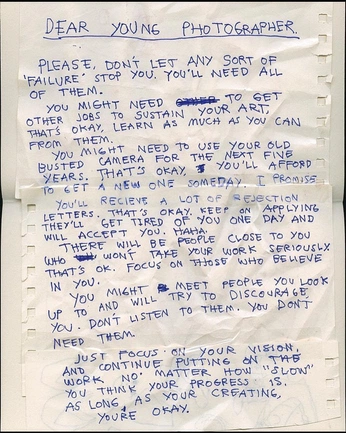 DEAR YOUNG PHOTOGRAPHER.
PLEASE, DON'T LET ANY SORT OF
'FAILURE' STOP YOU. YOU'LL NEED ALL
OF THEM.
YOU MIGHT NEED TO GET
OTHER JOBS TO SUSTAIN YOUR ART.
THAT'S OKAY, LEARN AS MUCH AS YOU CAN
FROM THEM.
YOU MIGHT NEED TO USE YOUR OLD
BUSTED CAMERA FOR THE NEXT FINE
YEARS. THAT'S OKAY, YOU'LL AFFORD
TO GET A NEW ONE SOMEDAY. I PROMISE
YOU'LL RECIEVE A LOT OF REJECTION
LETTERS. THAT'S OKAY. KEEP ON APPLYING
THEY'LL GET TIRED OF YOU ONE DAY AND
WILL ACCEPT YOU. HAHA.
THERE WILL BE PEOPLE CLOSE TO YOU
WHO WON'T TAKE YOUR WORK SERIOUSLY
THAT'S OK. FOCUS ON THOSE WHO BELIEVE
IN YOU.
YOU MIGHT MEET PEOPLE YOU LOOK
UP TO AND WILL TRY TO DISCOURAGE
YOU. DON'T LISTEN TO THEM. YOU DON'T
NEED THEM.
JUST FOCUS ON YOUR VISION,
AND CONTINUE PUTTING ON THE
WORK NO MATTER HOW "SLOW"
YOU THINK YOUR PROGRESS IS.
AS LONG AS YOUR CREATING,
YOU'RE OKAY.